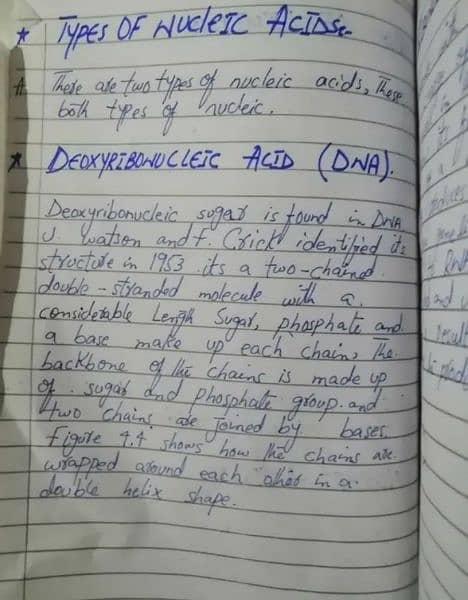 * TYPES OF NUCLEIC ACIDS:-
A. There are two types of nucleic acids, These
both types of nucleic.
* DEOXYRIBONUCLEIC ACID (DNA).
Deoxyribonucleic sugar is found in DNA
J. Watson and F. Crick identified its
structure in 1953. its a two-chained
double-stranded molecule with a
considerable Length Sugar, phosphate and
a base make up each chain, The
backbone of the chains is made up
of sugar and phosphate group. and
two chains are joined by bases.
Figure 4.4 shows how the chains are
wrapped around each other in a
double helix shape.